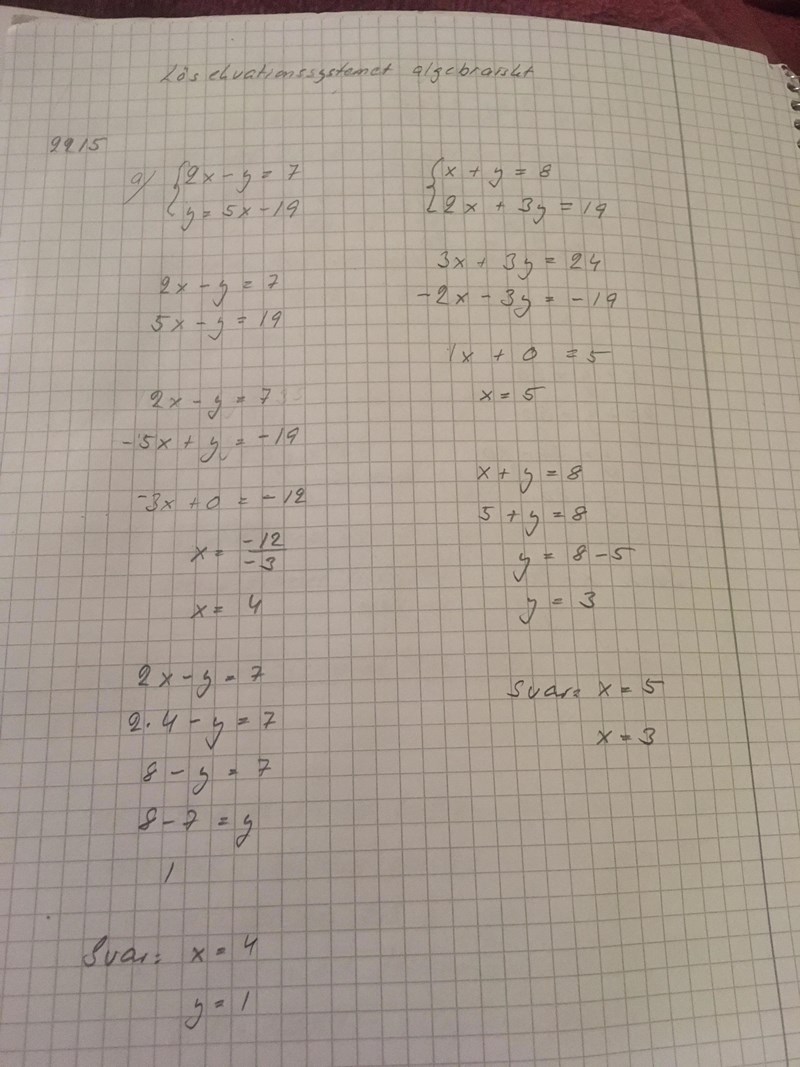 Lös ekvationssystemet algebraiskt
2215
a) {2x - y = 7
y = 5x - 19
2x - y = 7
5x - y = 19
2x - y = 7
-5x + y = -19
-3x + 0 = -12
x = -12/-3
x = 4
2x - y = 7
2·4 - y = 7
8 - y = 7
8 - 7 = y
1
Svar: x = 4
y = 1
{x + y = 8
2x + 3y = 19
3x + 3y = 24
-2x - 3y = -19
1x + 0 = 5
x = 5
x + y = 8
5 + y = 8
y = 8 - 5
y = 3
Svar: x = 5
x = 3